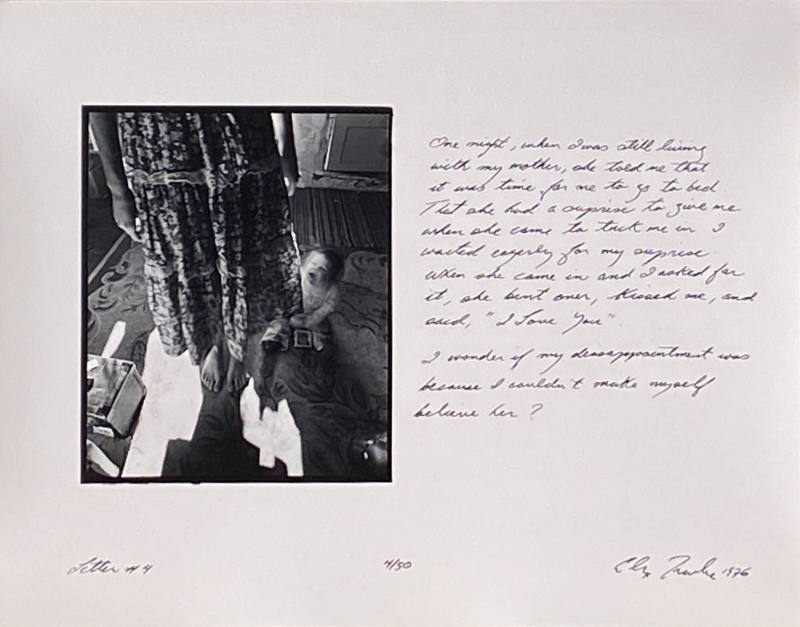 One night, when I was still living
with my mother, she told me that
it was time for me to go to bed.
That she had a suprise to give me
when she came to tuck me in. I
waited eagerly for my suprise.
When she came in and I asked for
it, she bent over, kissed me, and
said, "I Love You"
I wonder if my disappointment was
because I couldn't make myself
believe her?
Letter #4
4/50
1976